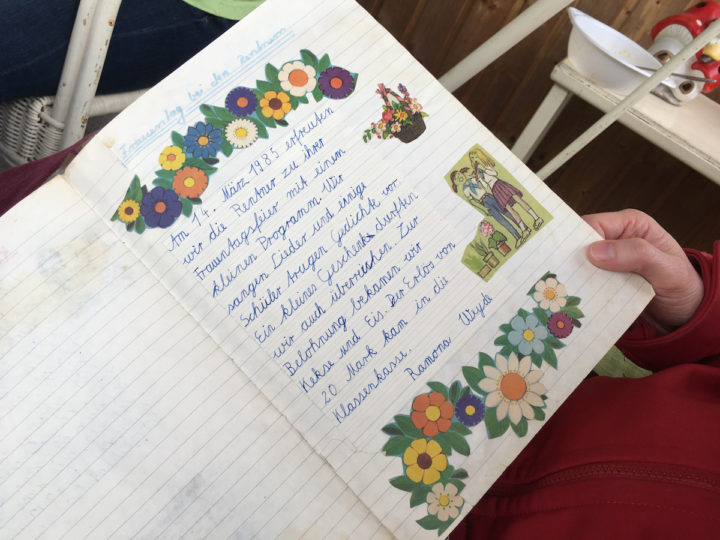 Frauentag bei den Rentnern
Am 14. März 1985 erfreuten
wir die Rentner zu ihrer
Frauentagsfeier mit einem
kleinen Programm. Wir
sangen Lieder und einige
Schüler trugen Gedichte vor.
Ein kleines Geschenk durften
wir auch überreichen. Zur
Belohnung bekamen wir
Kekse und Eis. Der Erlös von
20 Mark kam in die
Klassenkasse.
Ramona Weyde